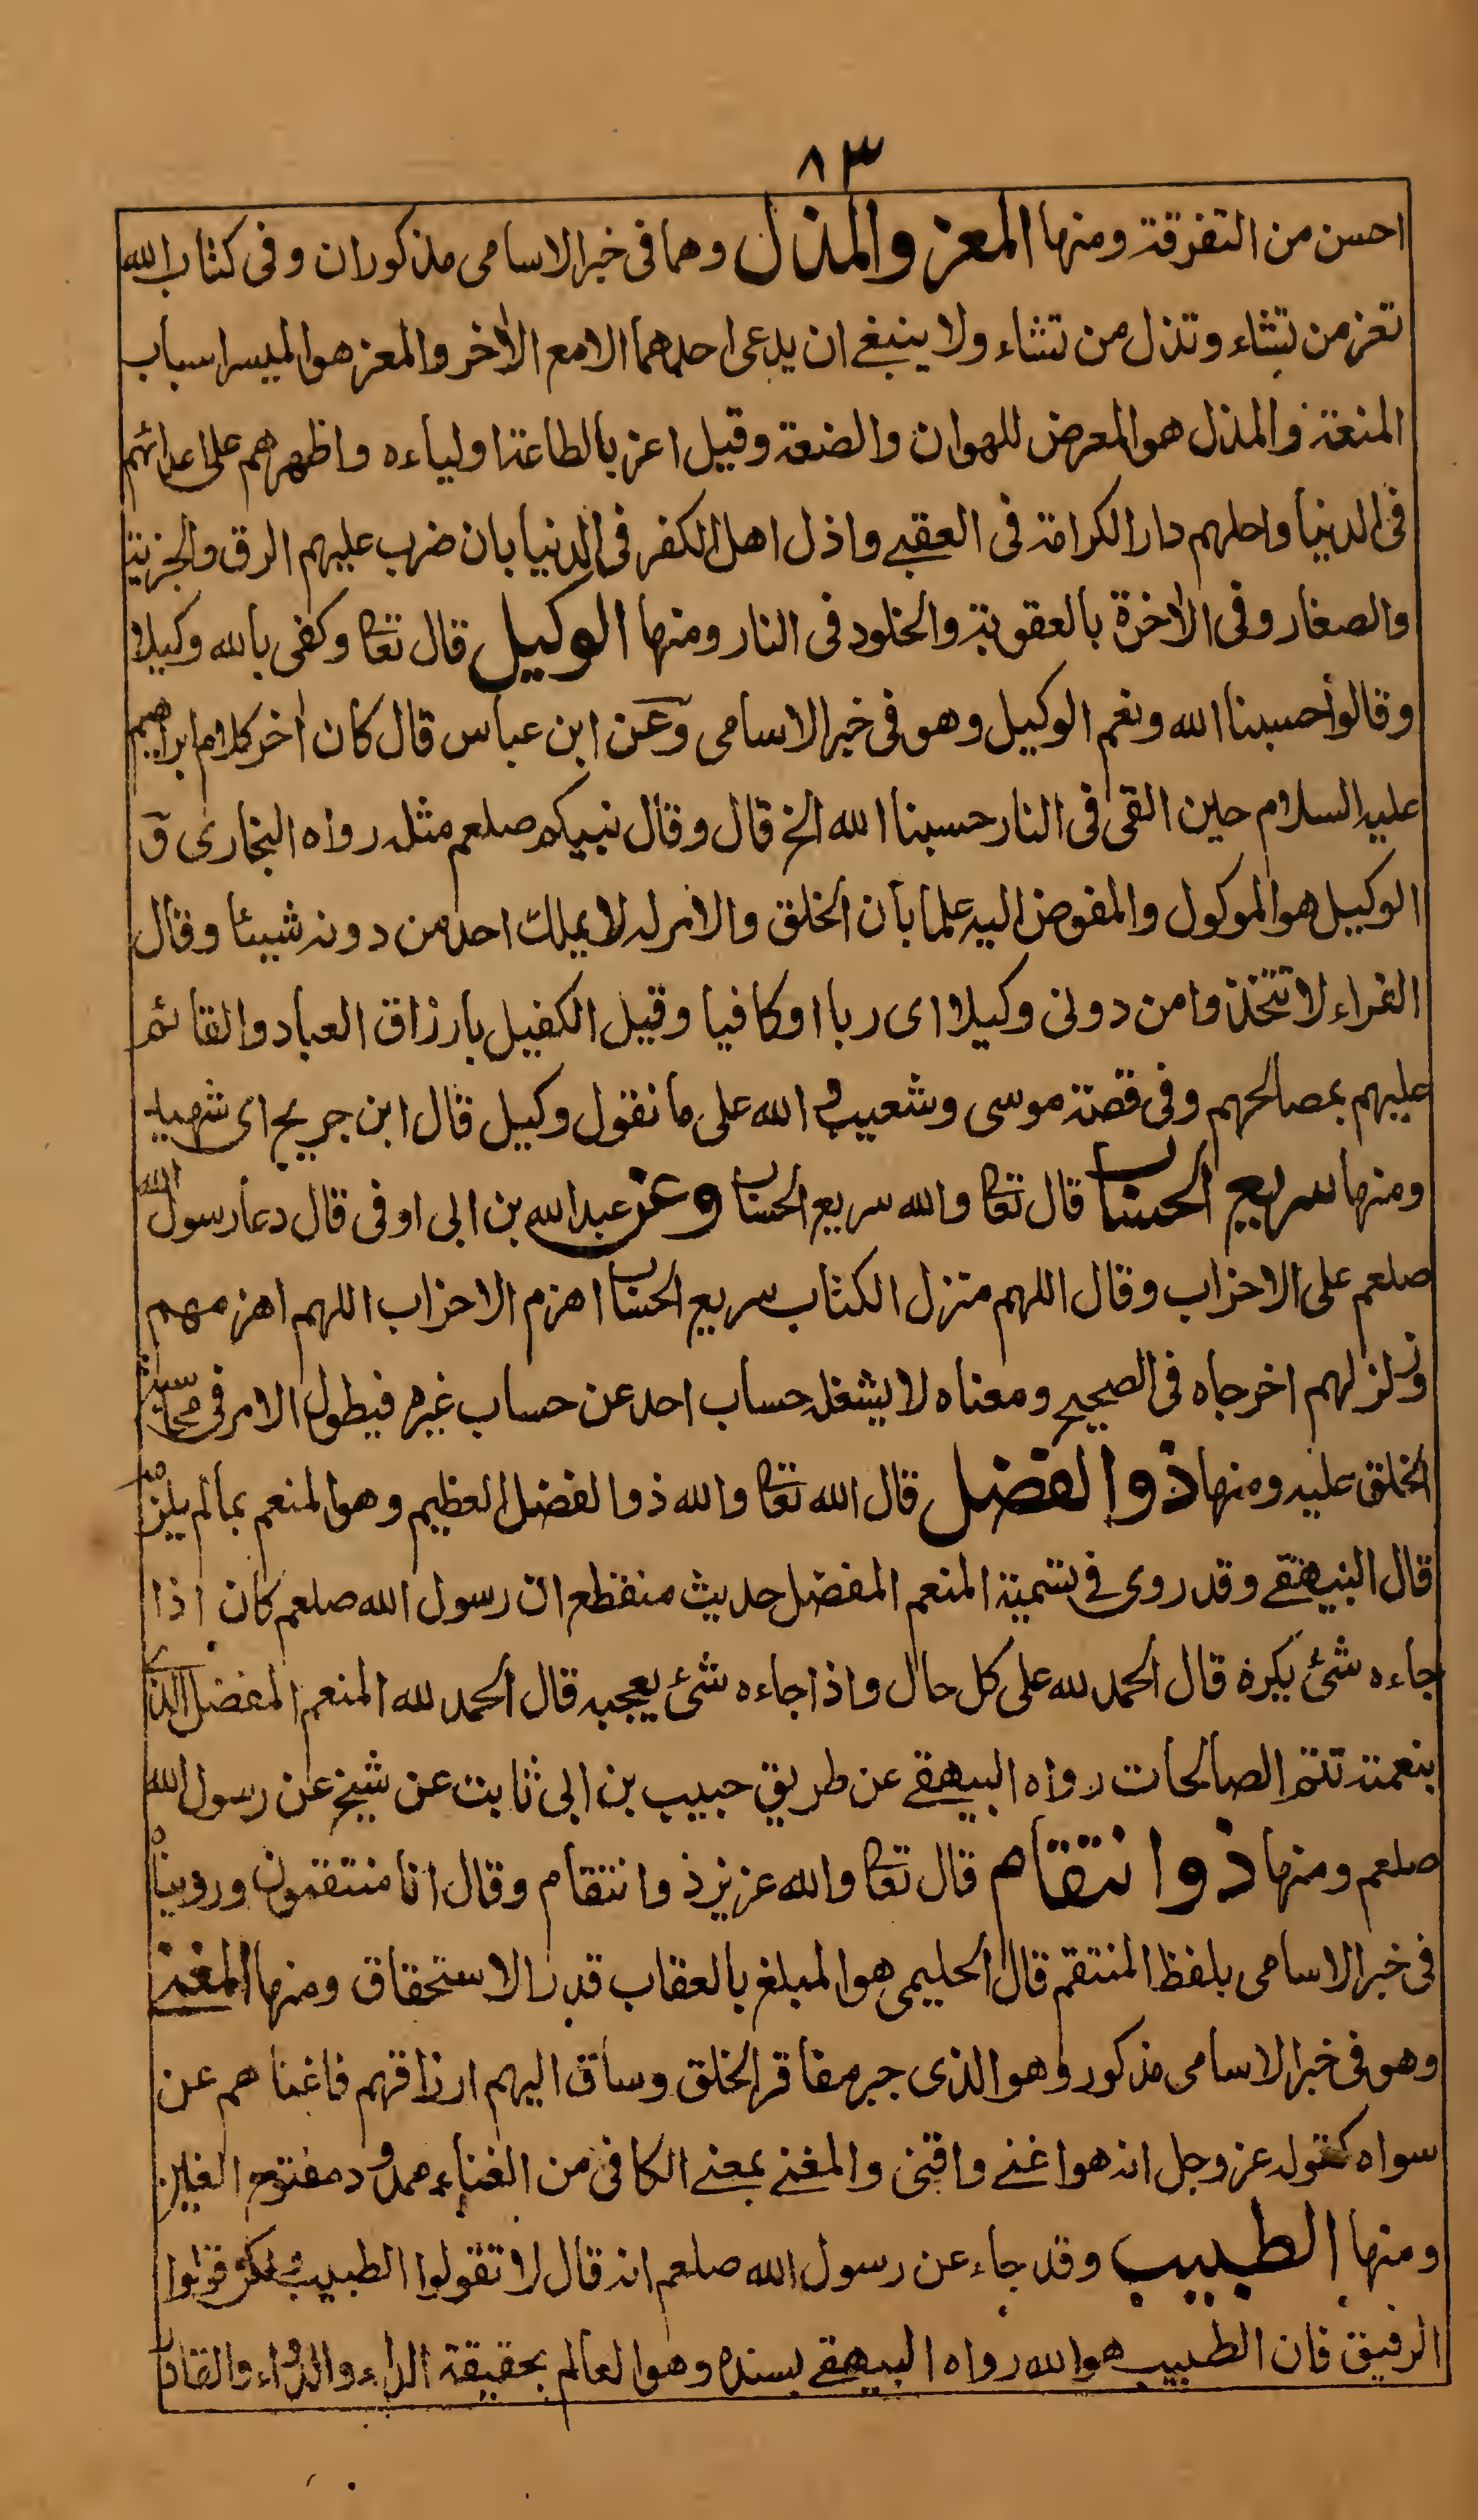 ٨٣
احسن من التفرقة ومنها المعز والمذل وهما فى خبر الاسامى مذكوران وفى كتاب الله
تعز من تشاء وتذل من تشاء ولا ينبغے ان يدعى احدهما الا مع الآخر والمعز هو الميسر اسباب
المنعة والمذل هو المعرض للهوان والضعة وقيل اعز بالطاعة اولياءه واظهرهم على اعدائهم
فى الدنيا واحلهم دار الكرامة فى العقبے واذل اهل الكفر فى الدنيا بان ضرب عليهم الرق والجزية
والصغار وفى الآخرة بالعقوبة والخلود فى النار ومنها الوكيل قال تعا وكفى بالله وكيلا
وقالوا حسبنا الله ونعم الوكيل وهو فى خبر الاسامى وعن ابن عباس قال كان آخر كلام ابراهيم
عليه السلام حين القى فى النار حسبنا الله الخ قال وقال نبيكم صلعم مثله رواه البخارى ق
الوكيل هو الموكول والمفوض اليه علما بان الخلق والامر له لا يملك احد من دونه شيئا وقال
الفراء لا تتخذوا من دونى وكيلا اى ربا او كافيا وقيل الكفيل بارزاق العباد والقائم
عليهم بمصالحهم وفى قصة موسى وشعيب و الله على ما نقول وكيل قال ابن جريج اى شهيد
ومنها سريع الحساب قال تعا والله سريع الحساب وعن عبد الله بن ابى اوفى قال دعا رسول الله
صلعم على الاحزاب وقال اللهم منزل الكتاب سريع الحساب اهزم الاحزاب اللهم اهزمهم
وزلزلهم اخرجاه فى الصحيح ومعناه لا يشغله حساب احد عن حساب غيره فيطول الامر فى محاسبة
الخلق عليه ومنها ذو الفضل قال الله تعا والله ذو الفضل العظيم وهو المنعم بما لم يلزمه
قال البيهقے وقد روى فے تسمية المنعم المفضل حديث منقطع ان رسول الله صلعم كان اذا
جاءه شئ يكره قال الحمد لله على كل حال واذا جاءه شئ يعجبه قال الحمد لله المنعم المفضل الذى
بنعمته تتم الصالحات رواه البيهقے عن طريق حبيب بن ابى ثابت عن شيخ عن رسول الله
صلعم ومنها ذو انتقام قال تعا والله عزيز ذو انتقام وقال انا منتقمون ورويناه
فى خبر الاسامى بلفظ المنتقم قال الحليمى هو المبلغ بالعقاب قدر الاستحقاق ومنها المغنے
وهو فى خبر الاسامى مذكور وهو الذى جبر مفاقر الخلق وساق اليهم ارزاقهم فاغناهم عن
سواه كقوله عز وجل انه هو اغنے واقنى والمغنے بمعنے الكافى من الغناء ممدود مفتوح الغين
ومنها الطبيب وقد جاء عن رسول الله صلعم انه قال لا تقولوا الطبيب ولكن قولوا
الرفيق فان الطبيب هو الله رواه البيهقے بسنده وهو العالم بحقيقة الداء والدواء والقادر